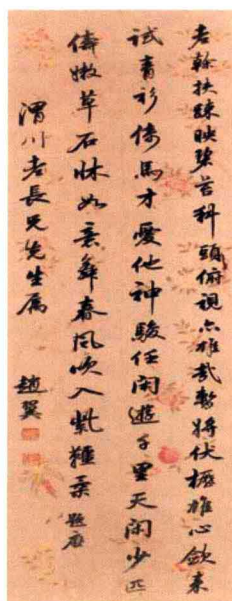 老幹扶疎映碧苔科頭俯視亦雄哉暫將伏櫪雄心斂來
試青衫倚馬才愛他神駿任閑遊千里天閑少匹
儔嫩草石牀如意春風吹入紫韁柔 題應
渭川老長兄先生属
趙翼